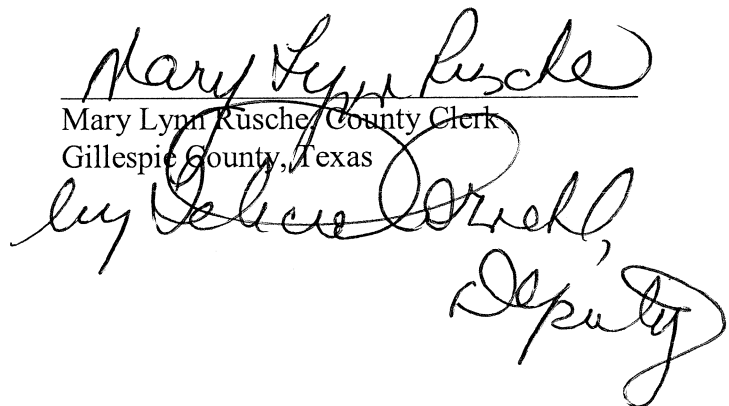 Mary Lynn Rusche
Mary Lynn Rusche, County Clerk
Gillespie County, Texas
by
Deputy